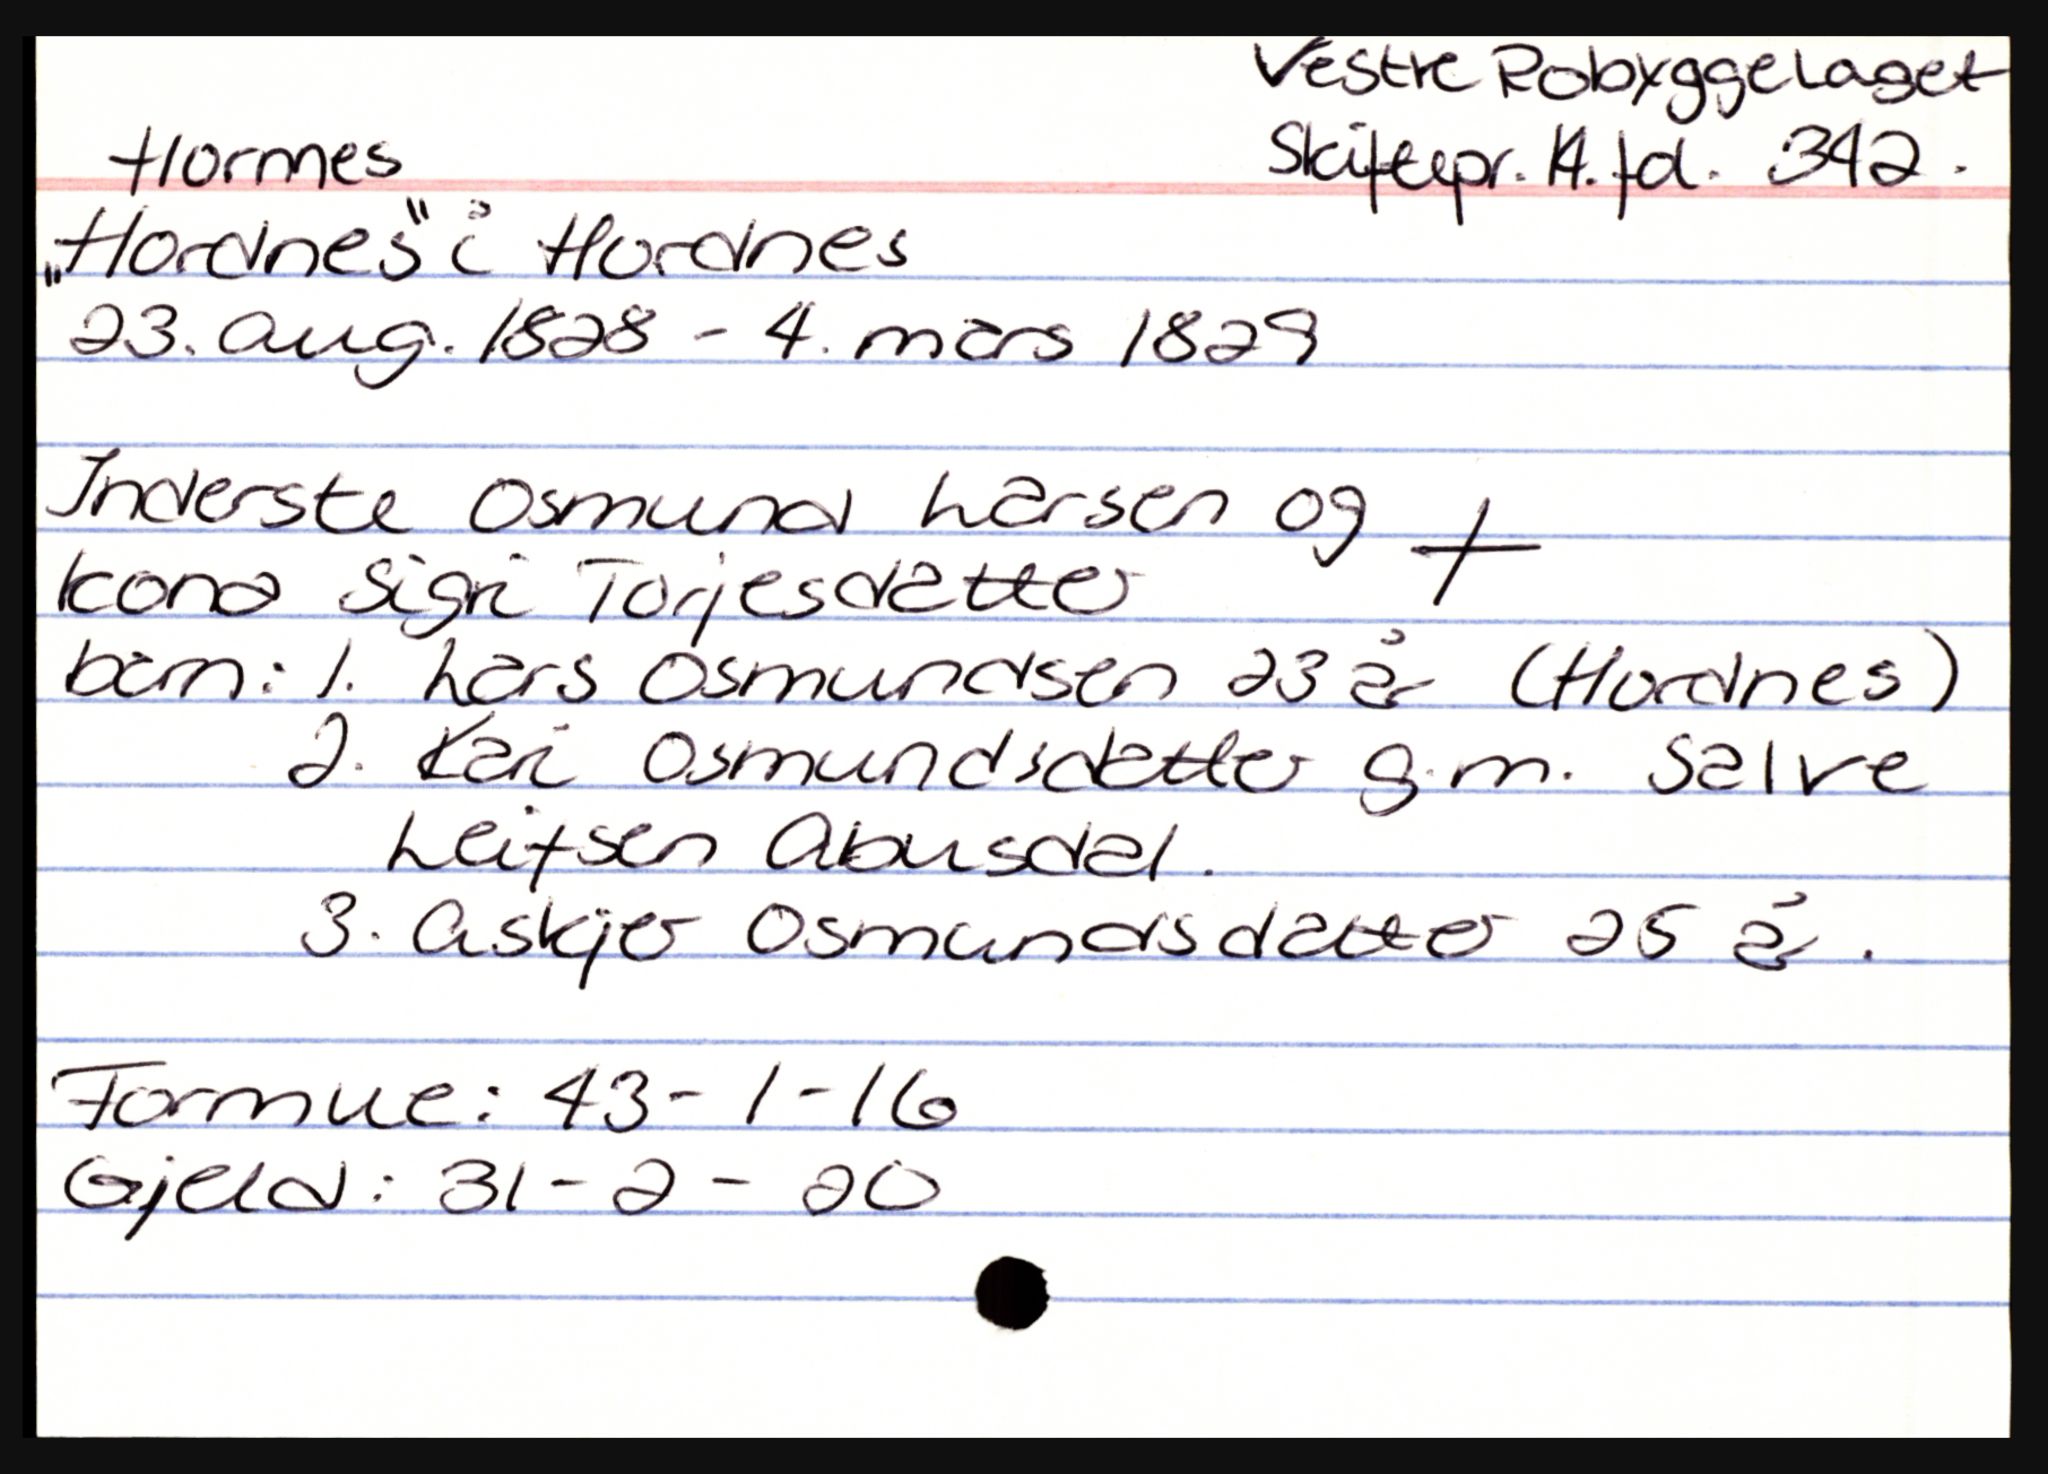 Vestre Robyggelaget
Skiftepr. 14. fol. 342.
Hornnes
„Hordnes" i Hordnes
23. aug. 1828 - 4. mars 1829
Inderste Osmund Larsen og +
kona Sigri Torjesdatter
barn: 1. Lars Osmundsen 23 år (Hordnes)
2. Kari Osmundsdatter g.m. Salve
Leifsen Abusdal.
3. Askjer Osmundsdatter 25 år.
Formue: 43 - 1 - 16
Gjeld: 31 - 2 - 20